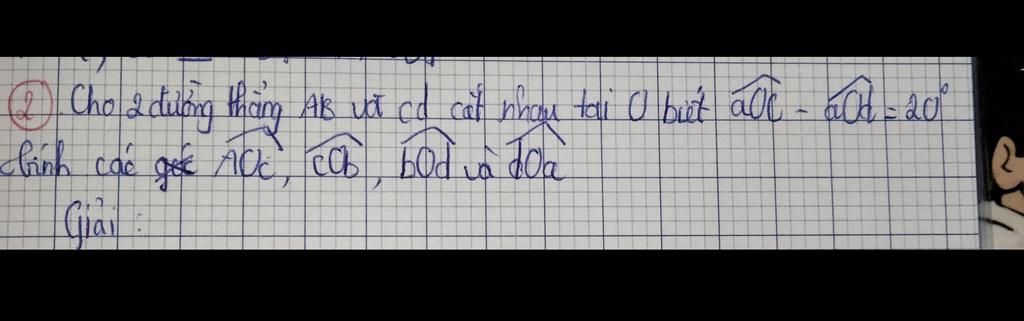 ② Cho 2 đường thẳng AB và cd cắt nhau tại O biết aOc - aOd = 20°
tính các góc AOc, cOb, bOd và dOa
Giải :